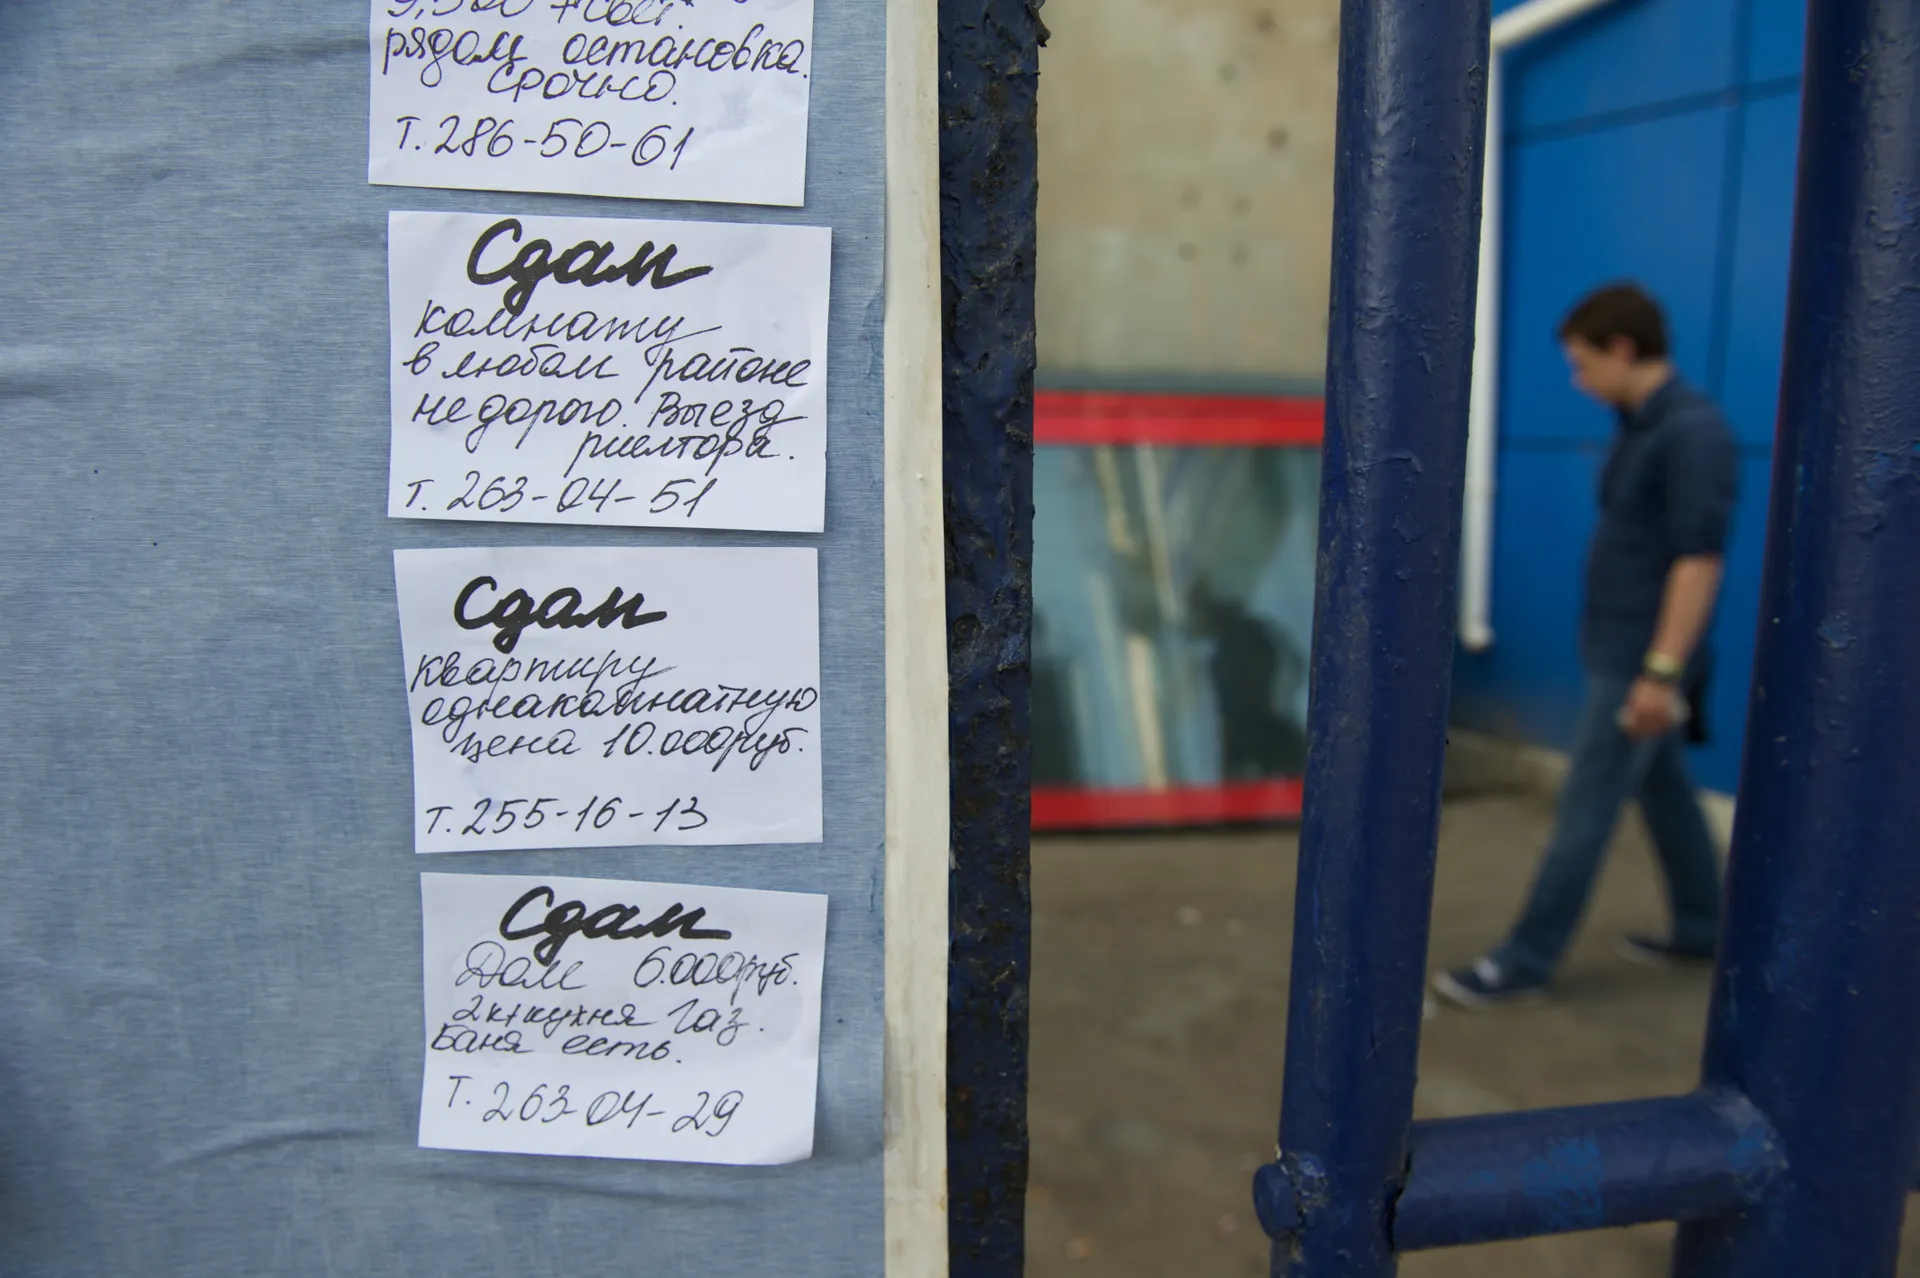 9,500 + свет.
рядом остановка.
срочно.
Т. 286-50-61
Сдам
комнату
в любом районе
недорого. Выезд
риелтора.
т. 263-04-51
Сдам
квартиру
однакомнатную
цена 10.000руб.
т. 255-16-13
Сдам
Дом 6.000руб.
2к+кухня Газ.
Баня есть.
Т. 263-04-29